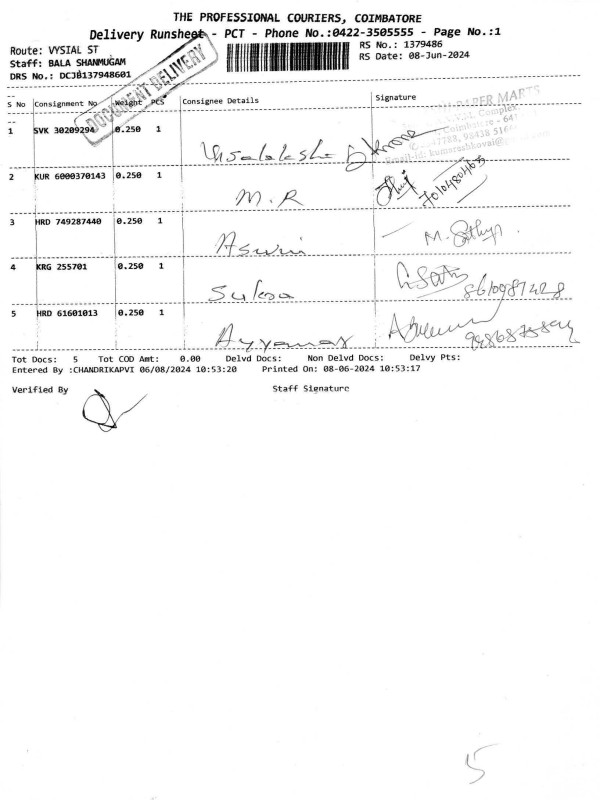 THE PROFESSIONAL COURIERS, COIMBATORE
Delivery Runsheet - PCT - Phone No.:0422-3505555 - Page No.:1
Route: VYSIAL ST
RS No.: 1379486
Staff: BALA SHANMUGAM
RS Date: 08-Jun-2024
DRS No.: DCJB137948601
DOCUMENT DELIVERY
S No Consignment No Weight PCS Consignee Details Signature
PAPER MARTS
Complex
Coimbatore - 641
1 SVK 30209294 0.250 1
2 KUR 6000370143 0.250 1 M. R
7010480463
3 HRD 749287440 0.250 1 Aswin M. Sathya
4 KRG 255701 0.250 1
5 HRD 61601013 0.250 1 Ayyanar
Tot Docs: 5 Tot COD Amt: 0.00 Delvd Docs: Non Delvd Docs: Delvy Pts:
Entered By :CHANDRIKAPVI 06/08/2024 10:53:20 Printed On: 08-06-2024 10:53:17
Verified By Staff Signature
5